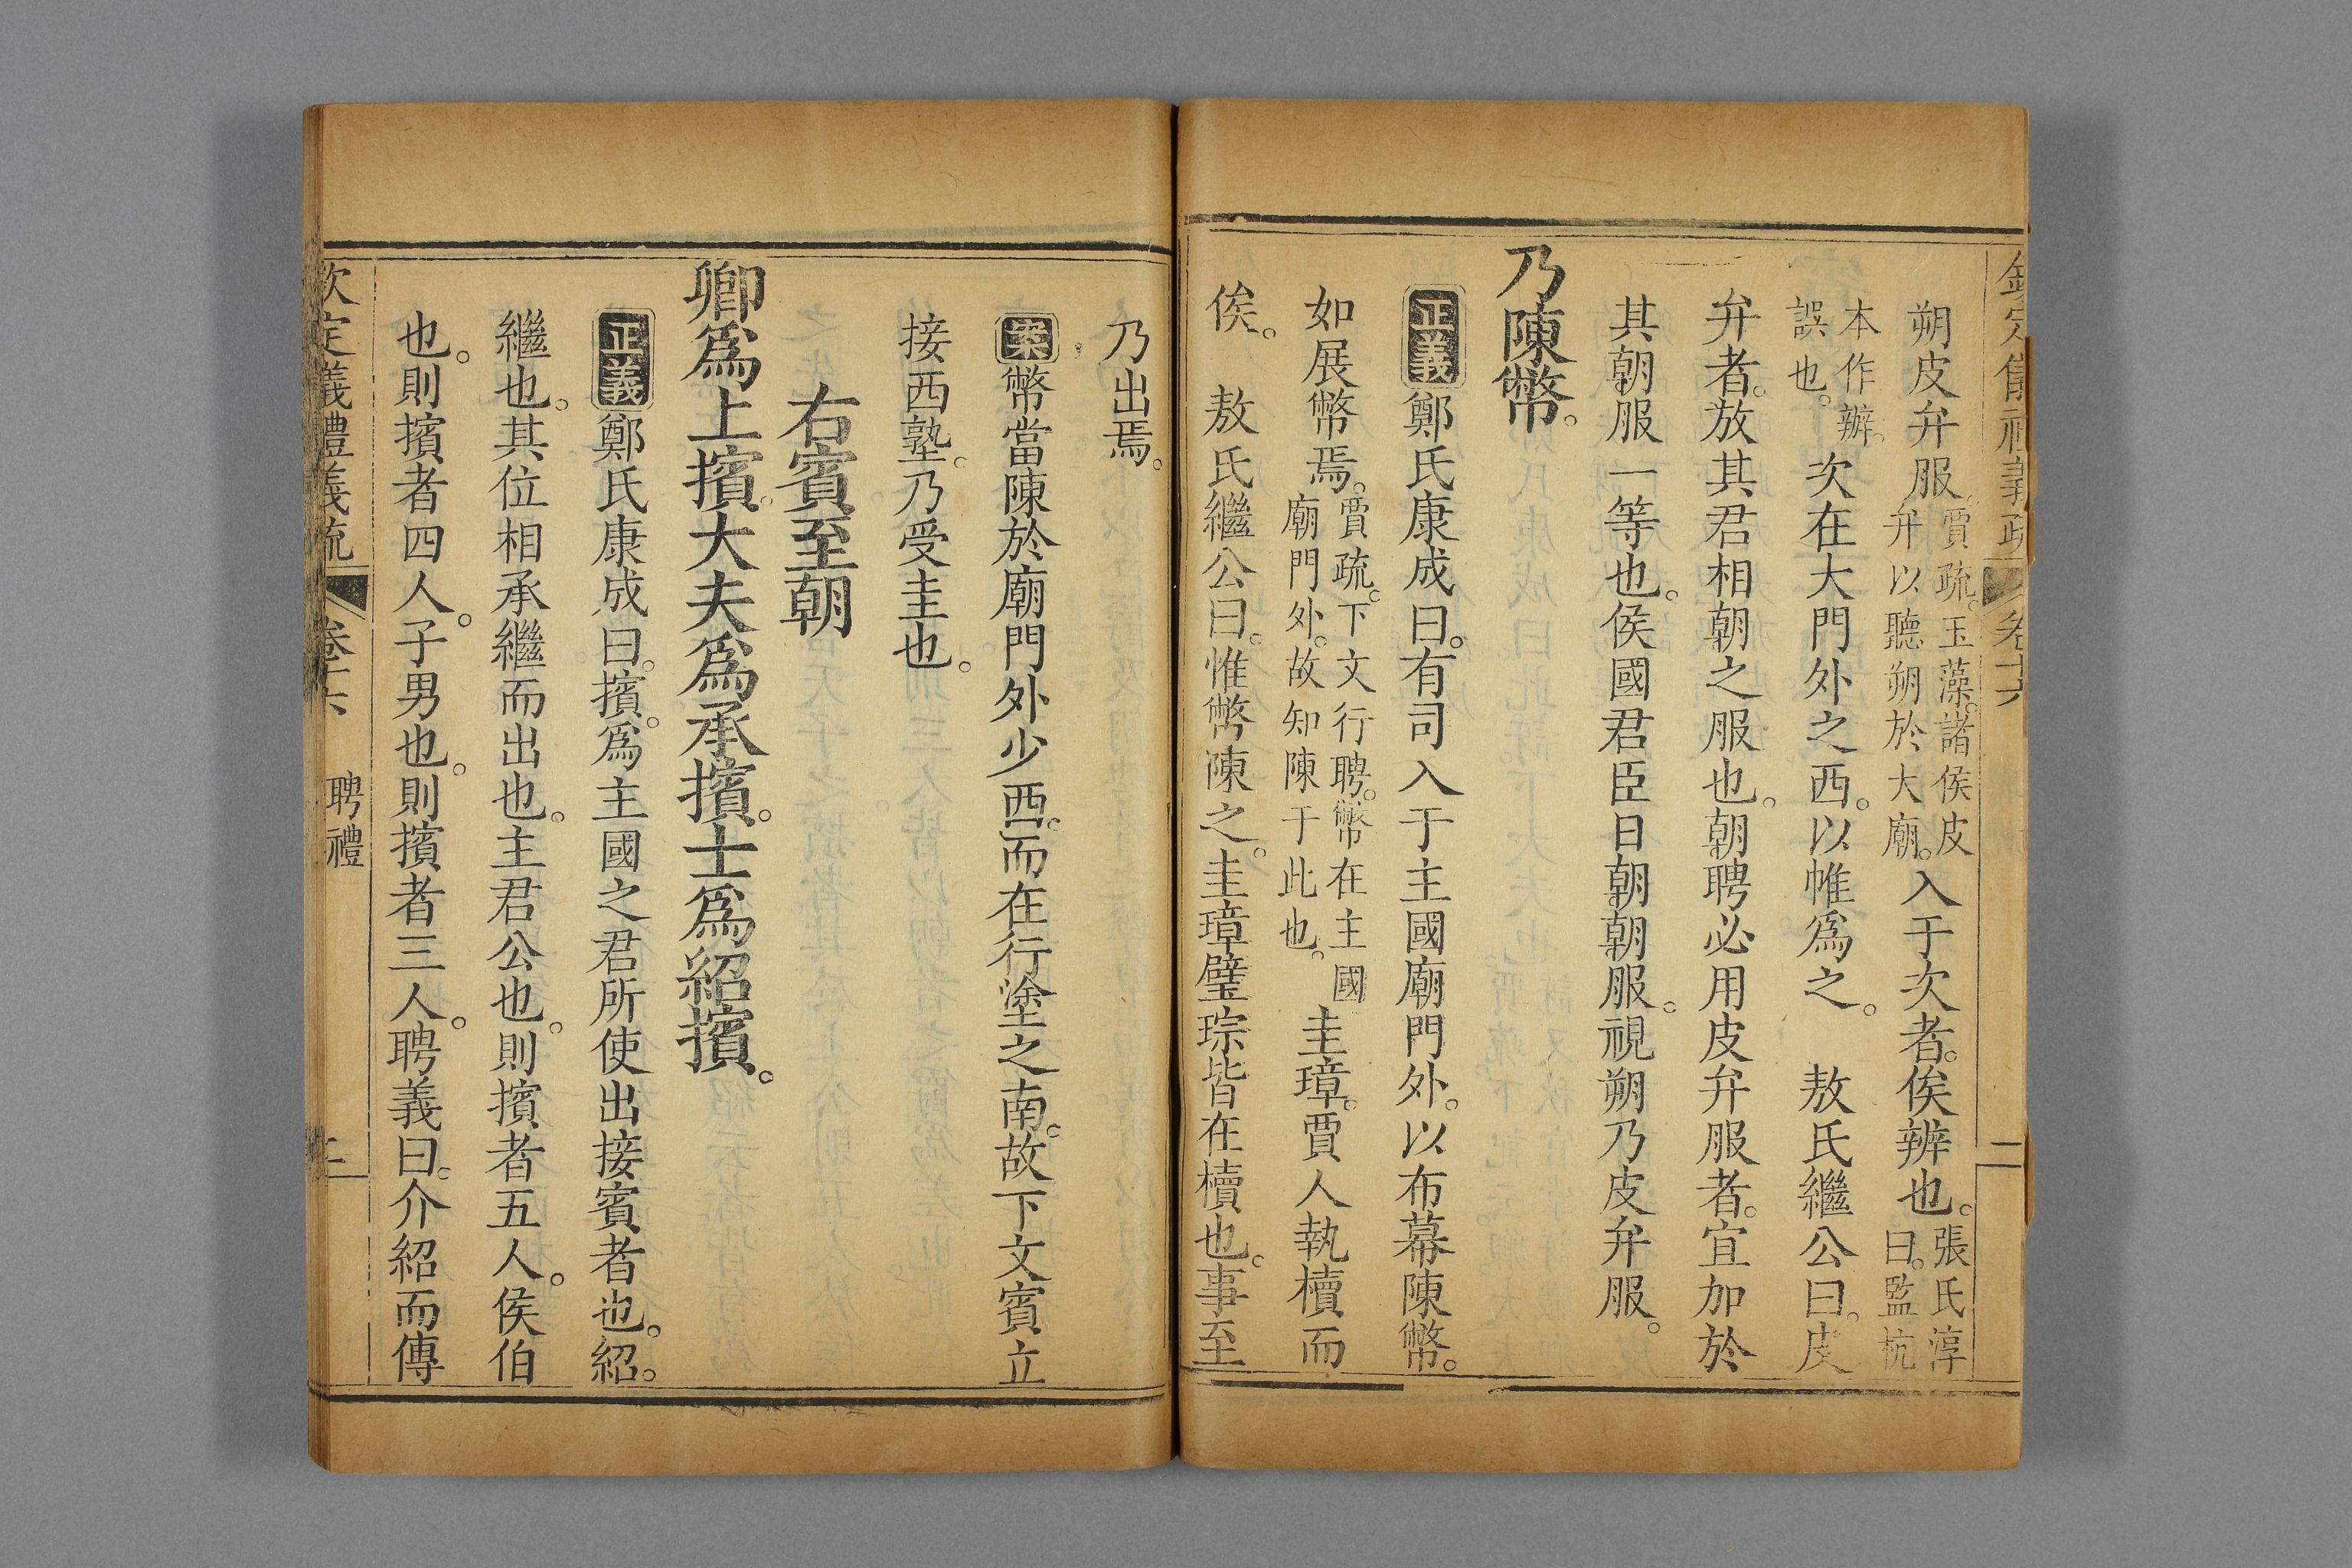 欽定儀禮義疏 卷十六 二
朔皮弁服。賈疏。玉藻。諸侯皮弁以聽朔於大廟。入于次者。俟辨也。張氏淳曰。監杭
本作辦。誤也。次在大門外之西。以帷爲之。 敖氏繼公曰。皮
弁者。放其君相朝之服也。朝聘必用皮弁服者。宜加於
其朝服一等也。侯國君臣日朝朝服。視朔乃皮弁服。
乃陳幣。
正義鄭氏康成曰。有司入于主國廟門外。以布幕陳幣。
如展幣焉。賈疏。下文行聘。幣在主國廟門外。故知陳于此也。圭璋。賈人執櫝而
俟。 敖氏繼公曰。惟幣陳之。圭璋璧琮皆在櫝也。事至
乃出焉。
案幣當陳於廟門外少西。而在行塗之南。故下文賓立
接西塾。乃受圭也。
右賓至朝
卿爲上擯。大夫爲承擯。士爲紹擯。
正義鄭氏康成曰。擯。爲主國之君所使出接賓者也。紹。
繼也。其位相承繼而出也。主君公也。則擯者五人。侯伯
也。則擯者四人。子男也。則擯者三人。聘義曰。介紹而傳
欽定義禮義疏 卷十六 聘禮